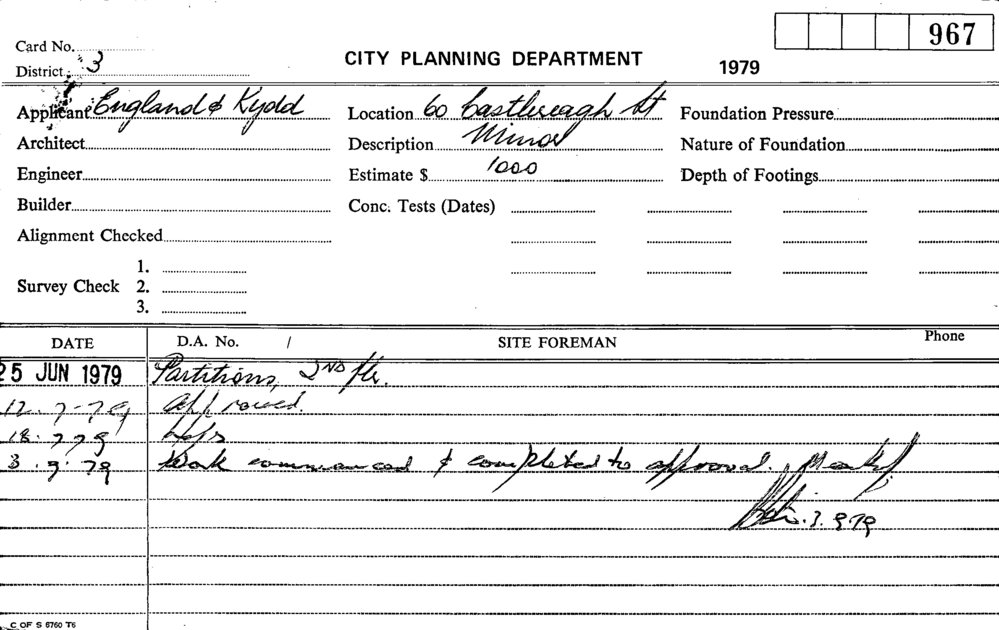 967
Card No.
CITY PLANNING DEPARTMENT
1979
District 3
Applicant England & Kydd
Location 60 Castlereagh St
Foundation Pressure
Architect
Description Minor
Nature of Foundation
Engineer
Estimate $ 1000
Depth of Footings
Builder
Conc. Tests (Dates)
Alignment Checked
Survey Check 1.
2.
3.
DATE D.A. No. / SITE FOREMAN Phone
25 JUN 1979 Partitions, 2ND flr.
12.7.79 approved.
18.7.79
3.9.79 Work commenced & completed to approval.
3.9.79
C OF S 6760 T6